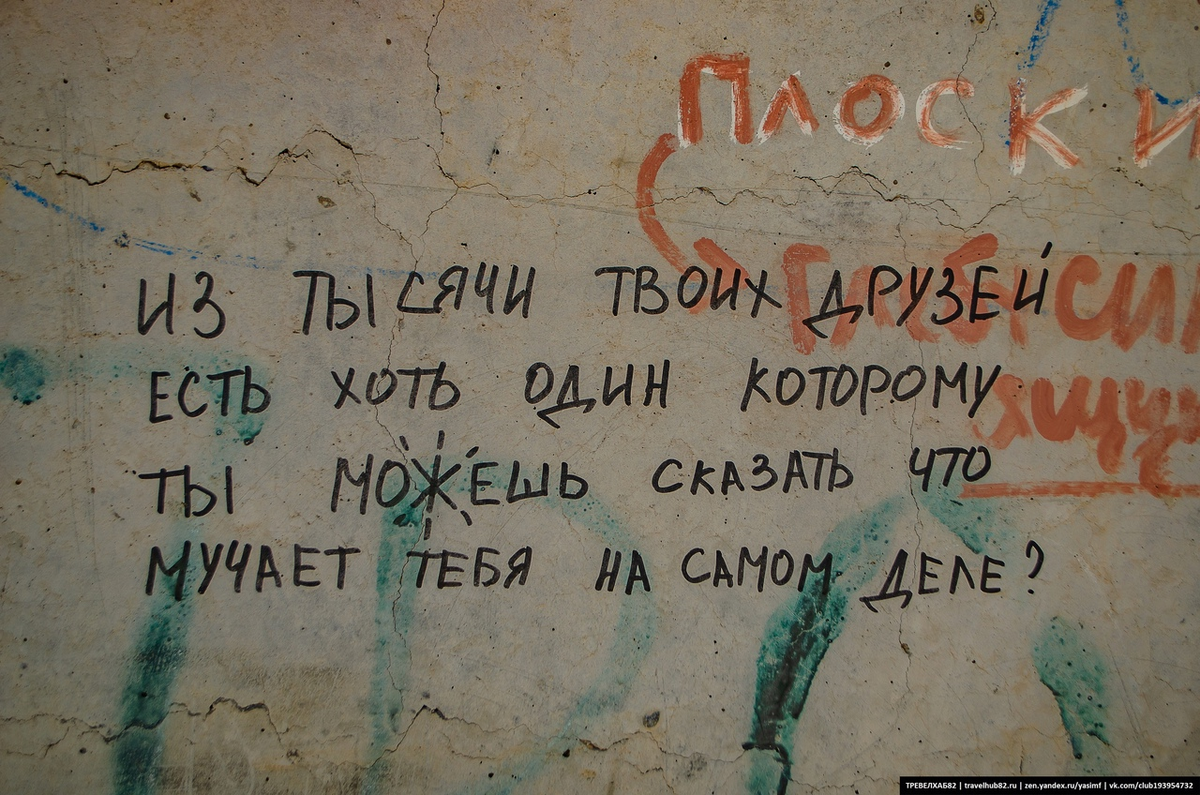 ПЛОСКИ
ИЗ ТЫСЯЧИ ТВОИХ ДРУЗЕЙ
ЕСТЬ ХОТЬ ОДИН КОТОРОМУ
ТЫ МОЖЕШЬ СКАЗАТЬ ЧТО
МУЧАЕТ ТЕБЯ НА САМОМ ДЕЛЕ?
ТРЕВЕЛХАБ82 | travelhub82.ru | zen.yandex.ru/yasimf | vk.com/club193954732